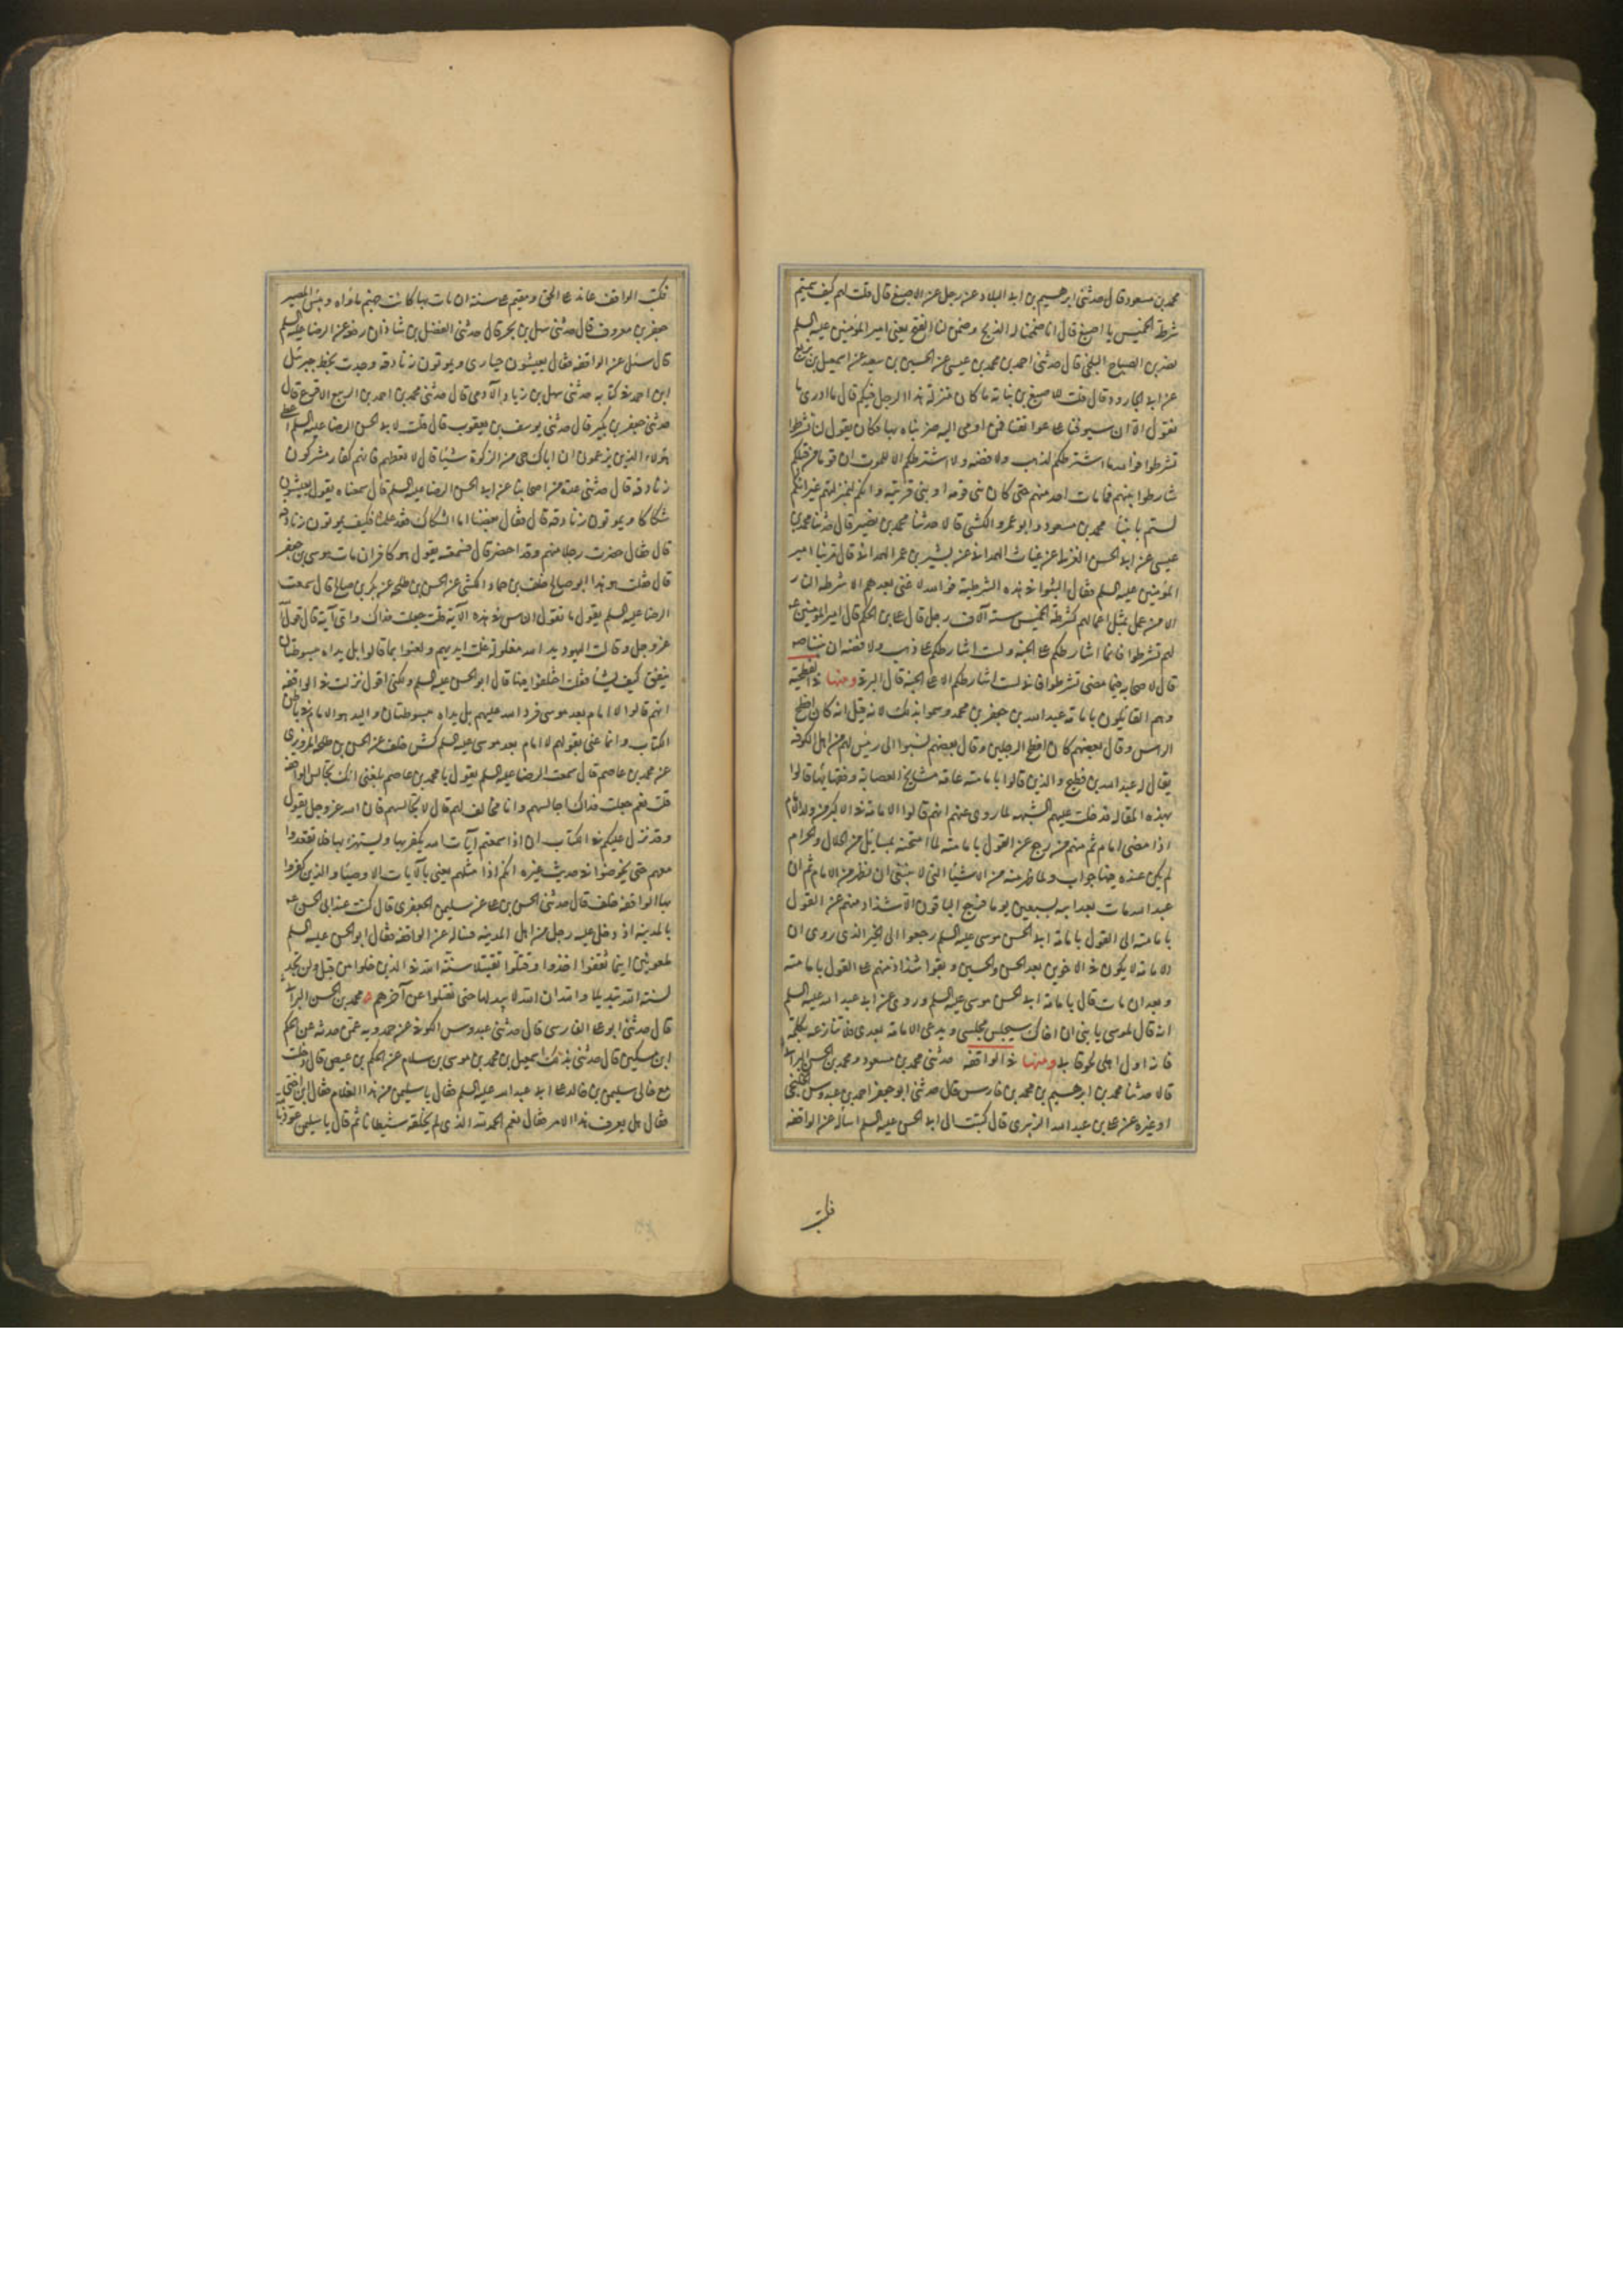 محمد بن مسعود قال حدثنى ابرهيم بن ابى البلاد عن رجل عن الاصبغ قال قلت لهم كيف سميتم
شرطة الخميس يا اصبغ قال انا ضمنا له الذبح وضمن لنا الفتح يعنى امير المؤمنين عليه السلم
نصر بن الصباح البلخى قال حدثنى احمد بن محمد بن عيسى عن الحسين بن سعيد عن اسمعيل بن بزيع
عن ابى الجارود قال قلت للاصبغ بن نباته ما كان منزلة هذا الرجل فيكم قال ما ادرى ما
تقول الا ان سيوفنا على عواتقنا فمن اومى اليه ضربناه بها وكان يقول لنا تشرطوا
تشرطوا فوالله ما اشترطكم لذهب ولا فضه ولا اشترطكم الا للموت ان قوما من قبلكم
تشارطوا بينهم فما مات احد منهم حتى كان نبى قومه او نبى قريته وانكم لبمنزلتهم غير انكم
لستم بانبيا محمد بن مسعود وابو عمرو الكشى قالا حدثنا محمد بن نصير قال حدثنا محمد بن
عيسى عن ابى الحسن الغزلى عن غياث الهمدانى عن بشير بن عمر الهمدانى قال مر بنا امير
المؤمنين عليه السلم فقال البثوا فى هذه الشرطية فوالله لا غنى بعدهم الا شرطة النار
الا من عمل بمثل اعمالهم كشرطة الخميس ستة آلاف رجل قال على بن الحكم قال امير المؤمنين ع
لهم تشرطوا فانما اشارطكم على الجنه ولست اشارطكم على ذهب ولا فضه ان نبينا صه
قال لاصحابه فيما مضى تشرطوا فانى لست اشارطكم الا على الجنة قال البرقى ومنها فى الفطحية
وهم القايلون بامامة عبدالله بن جعفر بن محمد وسموا بذلك لانه قيل انه كان افطح
الراس وقال بعضهم كان افطح الرجلين وقال بعضهم نسبوا الى رئيس لهم من اهل الكوفه
يقال له عبدالله بن فطيح والذين قالوا بامامته عامة مشايخ العصابة وفقهائها قالوا
بهذه المقاله فدخلت عليهم الشبهه لما روى عنهم انهم قالوا الامامة فى الاكبر من ولد الامام
اذا مضى امام ثم منهم من رجع عن القول بامامته لما امتحنه بمسايل من الحلال والحرام
لم يكن عنده فيها جواب ولما ظهر منه من الاشيا التى لا ينبغى ان تظهر من الامام ثم ان
عبدالله مات بعد ابيه بسبعين يوما فرجع الباقون الا شذاذا منهم عن القول
بامامته الى القول بامامة ابى الحسن موسى عليه السلم رجعوا الى الخبر الذى روى ان
الامامة لا يكون فى الاخوين بعد الحسن والحسين وبقوا شذاذ منهم على القول بامامته
وبعد ان مات قال بامامة ابى الحسن موسى عليه السلم وروى عن ابى عبدالله عليه السلم
انه قال لموسى يا بنى ان اخاك سيجلس مجلسى ويدعى الامامة بعدى فلا تنازعه بكلمة
فانه اول اهلى لحوقا بى ومنها فى الواقفه حدثنى محمد بن مسعود ومحمد بن الحسن البراثى
قالا حدثنا محمد بن ابرهيم بن محمد بن فارس قال حدثنى ابو جعفر احمد بن عبدوس الخلنجى
او غيره عن على بن عبدالله الزبيرى قال كتبت الى ابى الحسن عليه السلم اسأله عن الواقفه
فكتب
فكتب الواقف عاند عن الحق ومقيم على سنة ان مات بها كانت جهنم ماواه وبئس المصير
جعفر بن معروف قال حدثنى سهل بن بحر قال حدثنى الفضل بن شاذان رفعه عن الرضا عليه السلم
قال سئل عن الواقفه فقال يعيشون حيارى ويموتون زنادقه وجدت بخط جبرئيل
ابن احمد فى كتابه حدثنى سهل بن زياد الآدمى قال حدثنى محمد بن احمد بن الربيع الاقرع قال
حدثنى جعفر بن بكير قال حدثنى يوسف بن يعقوب قال قلت لابى الحسن الرضا عليه السلم اعطى
هؤلاء الذين يزعمون ان اباك حى من الزكوة شيئا قال لا تعطهم فانهم كفار مشركون
زنادقه قال حدثنى عدة من اصحابنا عن ابى الحسن الرضا عليه السلم قال سمعناه يقول يعيشون
شكاكا ويموتون زنادقه قال فقال بعضنا اما الشكاك فقد علمناه فكيف يموتون زنادقه
قال فقال حضرت رجلا منهم وقد احتضر قال فسمعته يقول هو كافر ان مات موسى بن جعفر
قال فقلت هو هذا ابو صالح خلف بن حماد الكشى عن الحسن بن طلحه عن بكر بن صالح قال سمعت
الرضا عليه السلم يقول ما تقول الناس فى هذه الآية قلت جعلت فداك واى آية قال قول الله
عز وجل وقالت اليهود يد الله مغلولة غلت ايديهم ولعنوا بما قالوا بل يداه مبسوطتان
ينفق كيف يشا فقلت اختلفوا فيها قال ابو الحسن عليه السلم ولكنى اقول نزلت فى الواقفه
انهم قالوا لا امام بعد موسى فرد الله عليهم بل يداه مبسوطتان واليد هو الامام فى باطن
الكتاب وانما عنى بقولهم لا امام بعد موسى عليه السلم كش خلف عن الحسن بن طلحه المروزى
عن محمد بن عاصم قال سمعت الرضا عليه السلم يقول يا محمد بن عاصم بلغنى انك تجالس الواقفه
قلت نعم جعلت فداك اجالسهم وانا مخالف لهم قال لا تجالسهم فان الله عز وجل يقول
وقد نزل عليكم فى الكتاب ان اذا سمعتم آيات الله يكفر بها ويستهزا بها فلا تقعدوا
معهم حتى يخوضوا فى حديث غيره انكم اذا مثلهم يعنى بالآيات الاوصيا والذين كفروا
بها الواقفه خلف قال حدثنى الحسن بن على عن سليمن الجعفرى قال كنت عند ابى الحسن ع
بالمدينة اذ دخل عليه رجل من اهل المدينه فساله عن الواقفه فقال ابو الحسن عليه السلم
ملعونين اينما ثقفوا اخذوا وقتلوا تقتيلا سنة الله فى الذين خلوا من قبل ولن تجد
لسنة الله تبديلا والله ان الله لا يبدلها حتى يقتلوا عن آخرهم محمد بن الحسن البراثى
قال حدثنى ابو على الفارسى قال حدثنى عبدوس الكوفى عن حمدويه عمن حدثه عن الحكم
ابن مسكين قال حدثنى بذلك اسمعيل بن محمد بن موسى بن سلام عن الحكم بن عيص قال دخلت
مع خالى سليمن بن خالد على ابى عبدالله عليه السلم فقال يا سليمن من هذا الغلام فقال ابن اختى
فقال هل يعرف هذا الامر فقال نعم الحمد لله الذى لم يخلقه شيطانا ثم قال يا سليمن عوذ